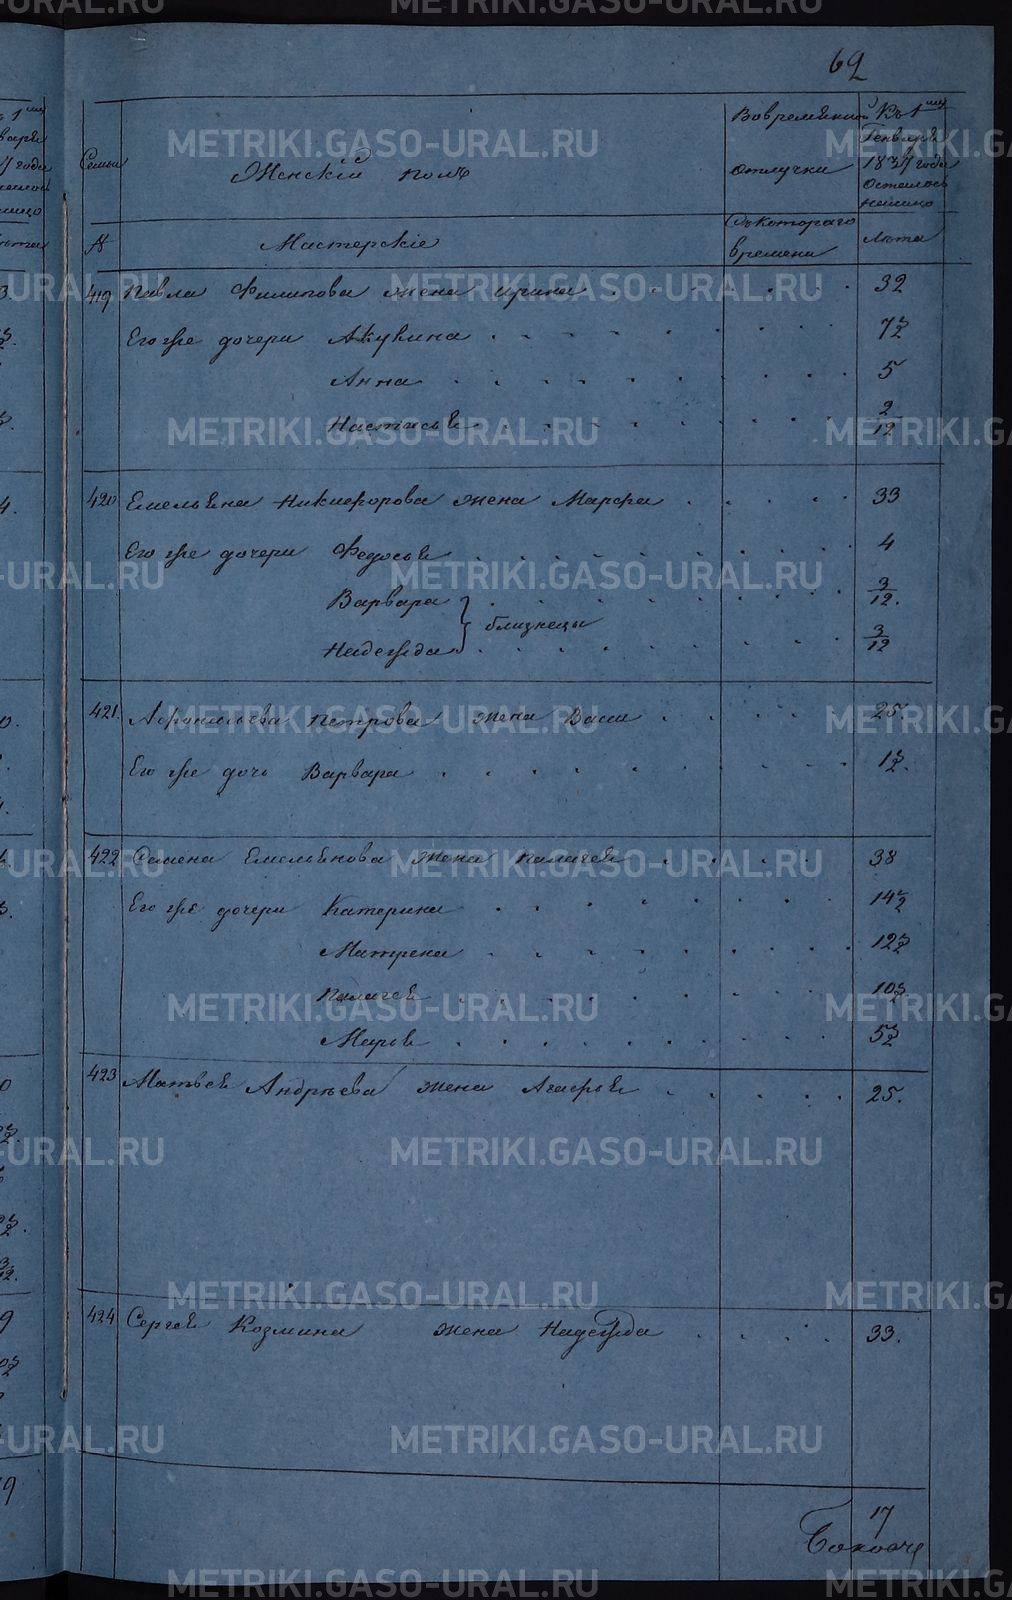 62
Женскій полъ
Во временной отлучки
Къ 1му Генваря 1837 года осталось налицо
Семьи
№
Мастерскіе
Съ котораго времени
Лѣта
419 Павла Филипова жена Ирина 32
Его же дочери Акулина 7½
Анна 5
Настасья 2/12
420 Емельяна Никифорова жена Марфа 33
Его же дочери Федосья 4
Варвара 3/12.
близнецы
Надежда 3/12
421. Афонасьева Петрова жена Васи 25.
Его же дочь Варвара 1½.
422 Семена Емельянова жена Палагея 38
Его же дочери Катерина 14½
Матрена 12½
Палагея 10½
Марья 5½
423 Матвея Андрѣева жена Агафья 25.
424 Сергея Козмина жена Надежда 33.
17
METRIKI.GASO-URAL.RU